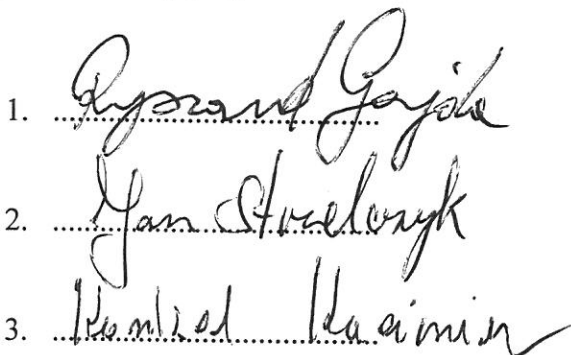 1. Ryszard Gajda
2. Jan Strzelczyk
3. Kazimier